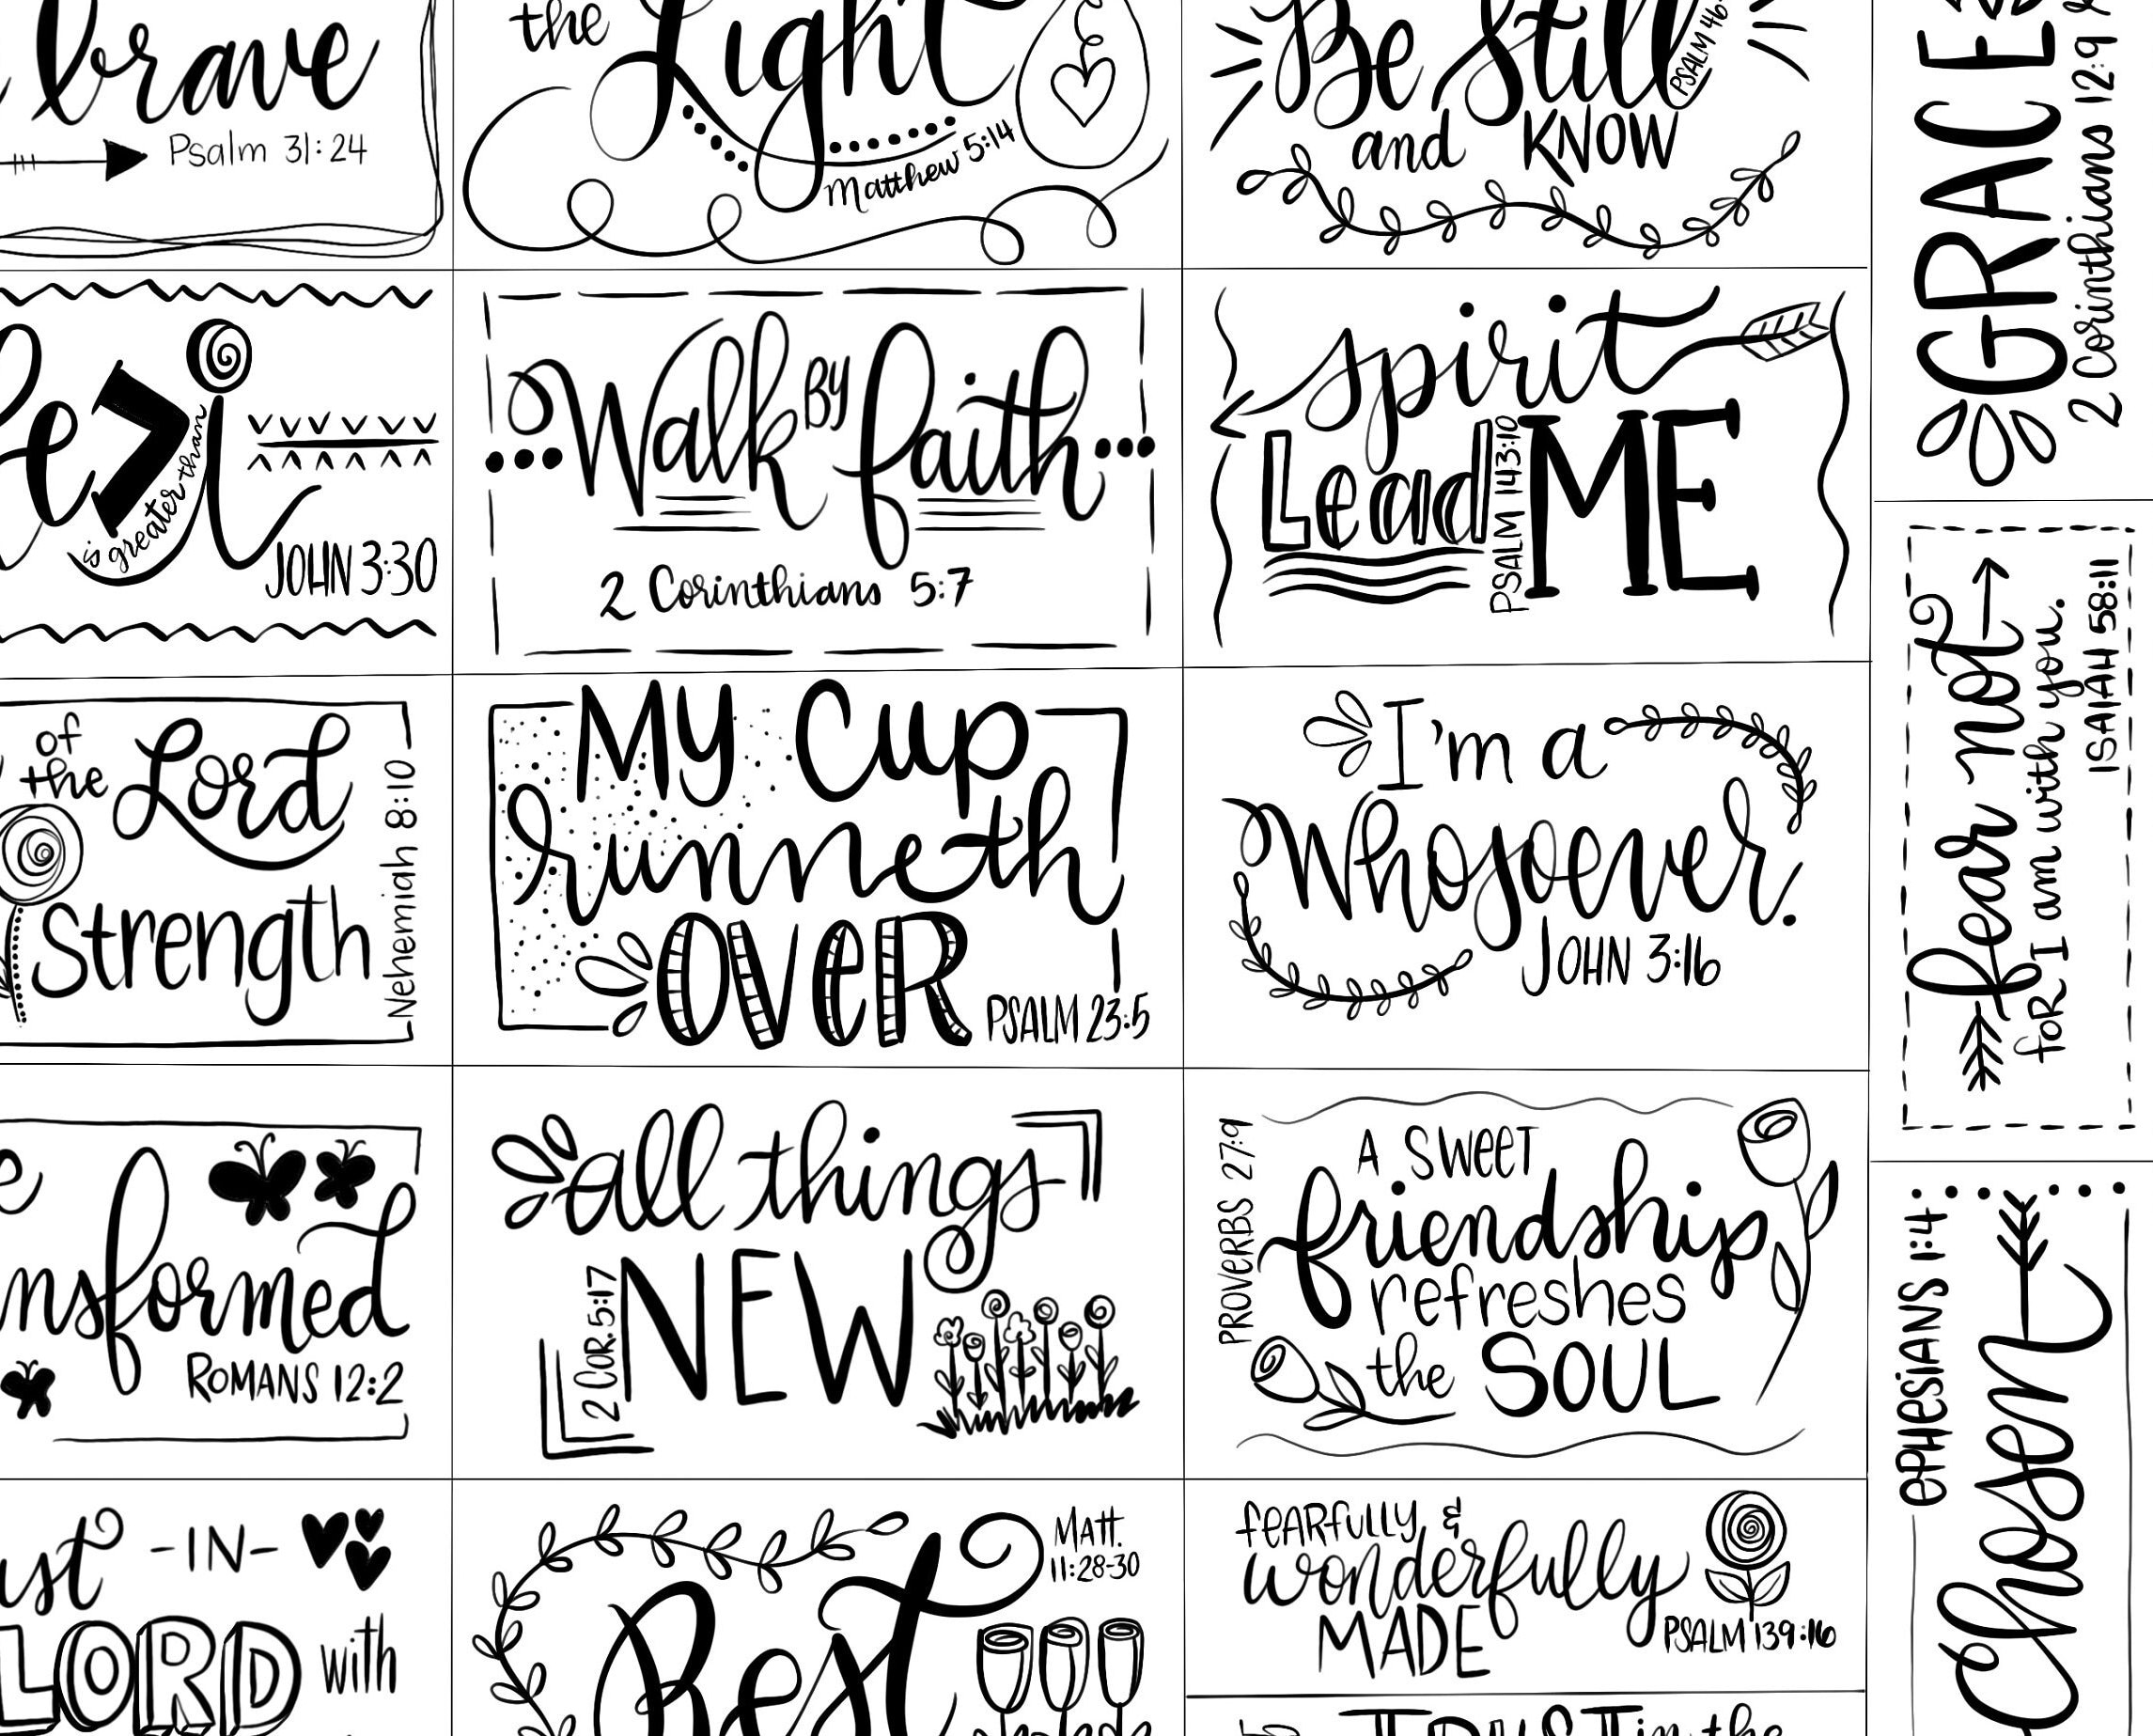 brave
Psalm 31:24
the
Light
Matthew 5:14
Be Still
PSALM 46:
and KNOW
is greater than
i
JOHN 3:30
Walk BY faith
2 Corinthians 5:7
spirit
Lead ME
PSALM 143:10
of
the Lord
Strength
Nehemiah 8:10
My Cup
runneth
OVER
PSALM 23:5
I'm a
Whosoever.
JOHN 3:16
nsformed
ROMANS 12:2
all things
NEW
2 COR. 5:17
PROVERBS 27:9
A SWEET
friendship
refreshes
the SOUL
ust -IN-
LORD with
Matt.
11:28-30
Rest
fearfully &
wonderfully
MADE
PSALM 139:16
TRUST in the
GRACE
2 Corinthians 12:9
fear not
for I am with you.
ISAIAH 58:11
EPHESIANS 1:4
Chosen